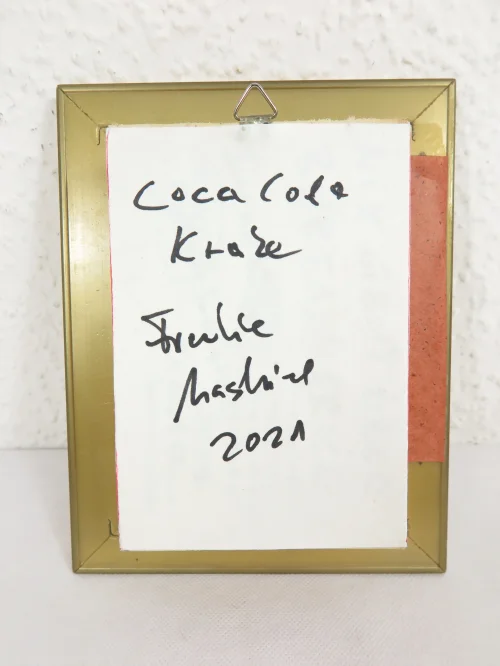 Coca Cola
Krake
Frauke
2021